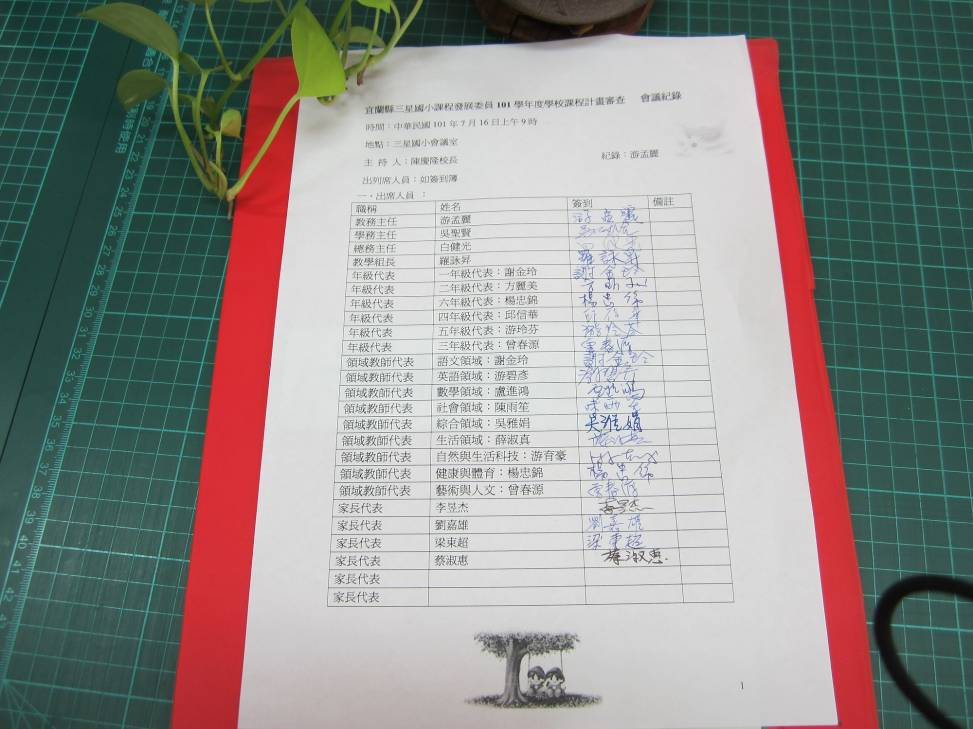 宜蘭縣三星國小課程發展委員101學年度學校課程計畫審查 會議紀錄
時間：中華民國101年7月16日上午9時
地點：三星國小會議室
主 持 人：陳慶隆校長 紀錄：游孟麗
出列席人員：如簽到簿
一、出席人員 ：
職稱 姓名 簽到 備註
教務主任 游孟麗
學務主任 吳聖賢
總務主任 白健光
教學組長 羅詠昇 羅詠昇
年級代表 一年級代表：謝金玲 謝金玲
年級代表 二年級代表：方麗美
年級代表 六年級代表：楊忠錦 楊忠錦
年級代表 四年級代表：邱信華
年級代表 五年級代表：游玲芬 游玲芬
年級代表 三年級代表：曾春源
領域教師代表 語文領域：謝金玲 謝金玲
領域教師代表 英語領域：游碧彥
領域教師代表 數學領域：盧進鴻
領域教師代表 社會領域：陳雨笙
領域教師代表 綜合領域：吳雅娟 吳雅娟
領域教師代表 生活領域：薛淑真
領域教師代表 自然與生活科技：游育豪
領域教師代表 健康與體育：楊忠錦 楊忠錦
領域教師代表 藝術與人文：曾春源
家長代表 李昱杰 李昱杰
家長代表 劉嘉雄 劉嘉雄
家長代表 梁東超 梁東超
家長代表 蔡淑惠 蔡淑惠
家長代表
家長代表
1
24
25
26
27
28
29
30
31
32
33
34
35
36
37
38
39
40
41
42